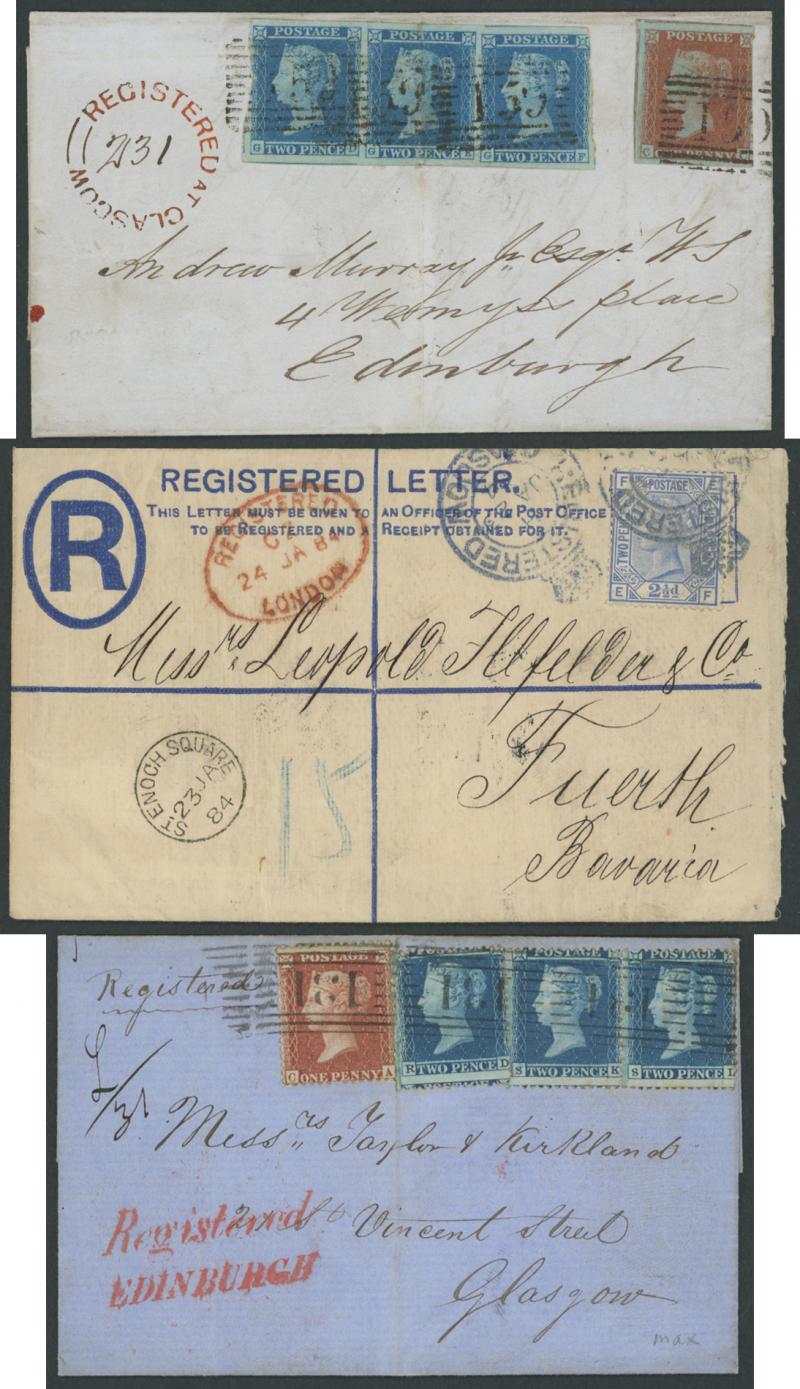 REGISTERED AT GLASGOW
231
G TWO PENCE D
G TWO PENCE E
G TWO PENCE F
159
159
Andrew Murray Jr. Esqr. W S
4 Wemyss place
Edinburgh
R
REGISTERED LETTER.
THIS LETTER MUST BE GIVEN TO AN OFFICER OF THE POST OFFICE
TO BE REGISTERED AND A RECEIPT OBTAINED FOR IT.
REGISTERED
24 JA 84
LONDON
REGISTERED
F POSTAGE E
E 2½d F
Messrs. Leopold Ilfelder & Co
Fuerth
Bavaria
ST ENOCH SQUARE
23 JA
84
15
Registered
POSTAGE
POSTAGE
POSTAGE
POSTAGE
131
131
C ONE PENNY A
R TWO PENCE D
S TWO PENCE K
S TWO PENCE L
Messrs Taylor & Kirkland
St Vincent Street
Glasgow
Registered
EDINBURGH
max